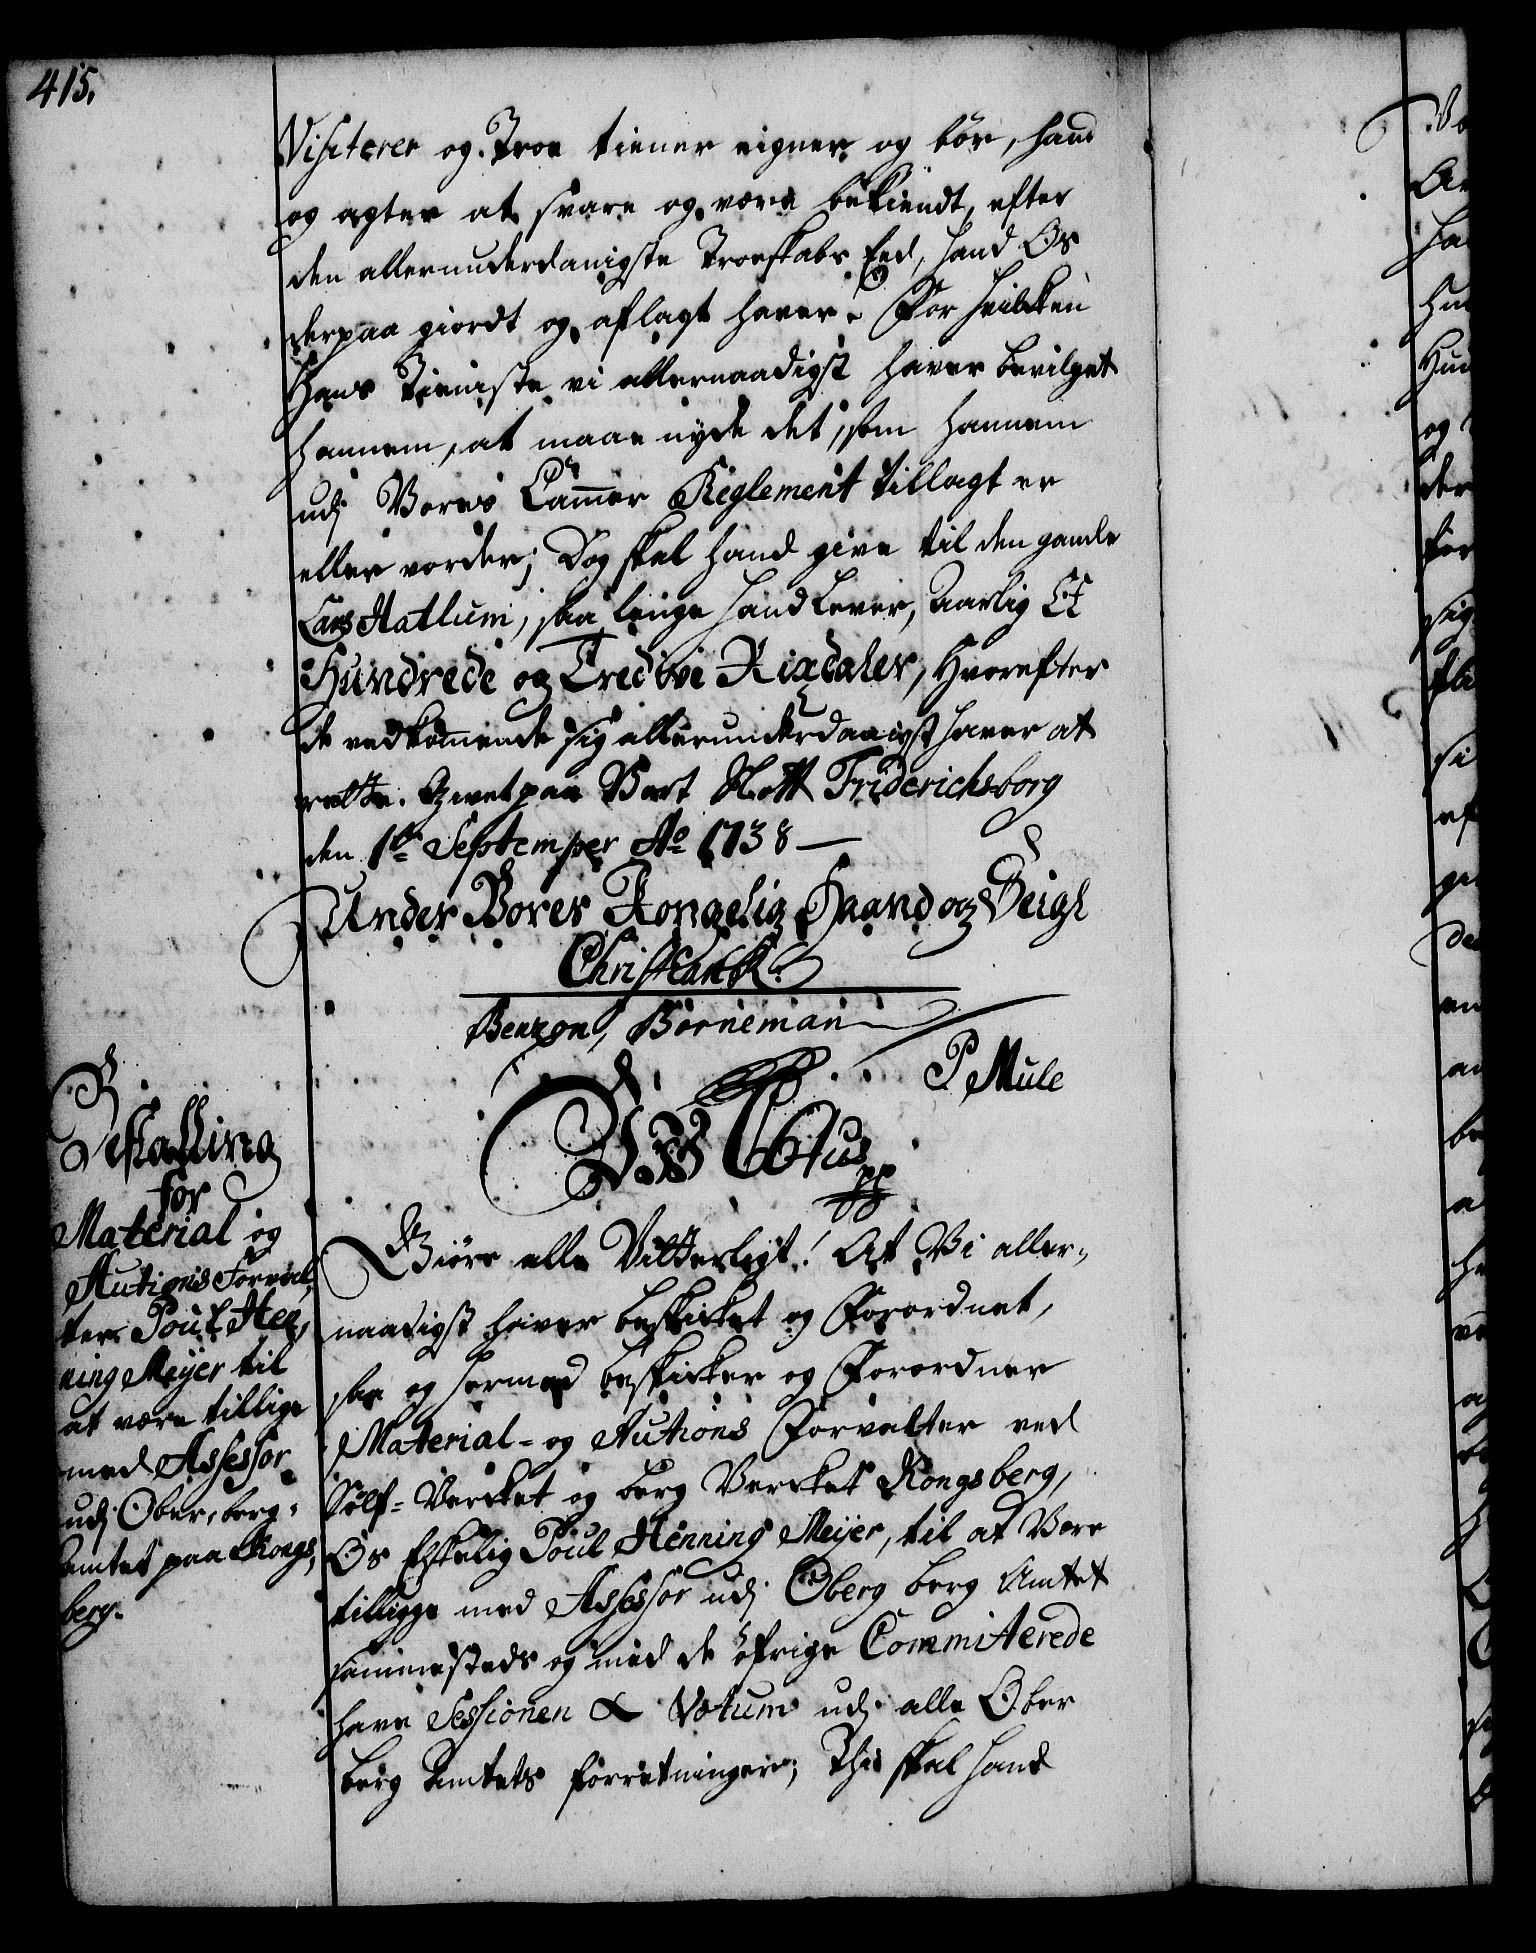 415.
Visiterer og Troe tiener eigner og bör, hand
og agter at svare og være bekiendt, efter
den allerunderdanigste Troeskabs Eed, hand Os
derpaa giordt og aflagt haver. For hvilken
Hans Tieniste vi allernaadigst haver bevilget
hannem, at maae nyde det, som hannem
udj Vores Cammer Reglement tillagt er
eller vorder; Dog skal hand give til den gamle
Lars Hatlum, saa lenge hand lever, Aarlig Et
Hundrede og Tredive Rixdaler, Hvorefter
de vedkommende sig allerunderdanigst haver at
rette. Givet paa Vort Slott Friderichsborg
den 1te September Ao 1738 —
Under Vores Kongelig Haand og Seigl
Christian R.
Benzon, Borneman
P Mule
Bestalling
for
Material og
Autions Forval,
ter Poul Hen,
ning Meijer til
at være tillige
med Assessor
udj Ober,berg-
amtet paa Kongs,
berg.
D.. C6tus pp
Giöre alle Vitterligt! At Vi aller-
naadigst haver beskikket og Forordnet,
saa og hermed beskikker og Forordner
Material- og Autions Forvalter ved
Sölf-Verket og berg Verket Kongsberg,
Os Elskelig Poul Henning Meijer, til at Være
tilligge med Assessor udj Oberg berg Amtet
sammesteds og med de öfrige Committerede
have Sessionen & Votum udj alle Ober
berg Amtets forretninger; Thi skal hand